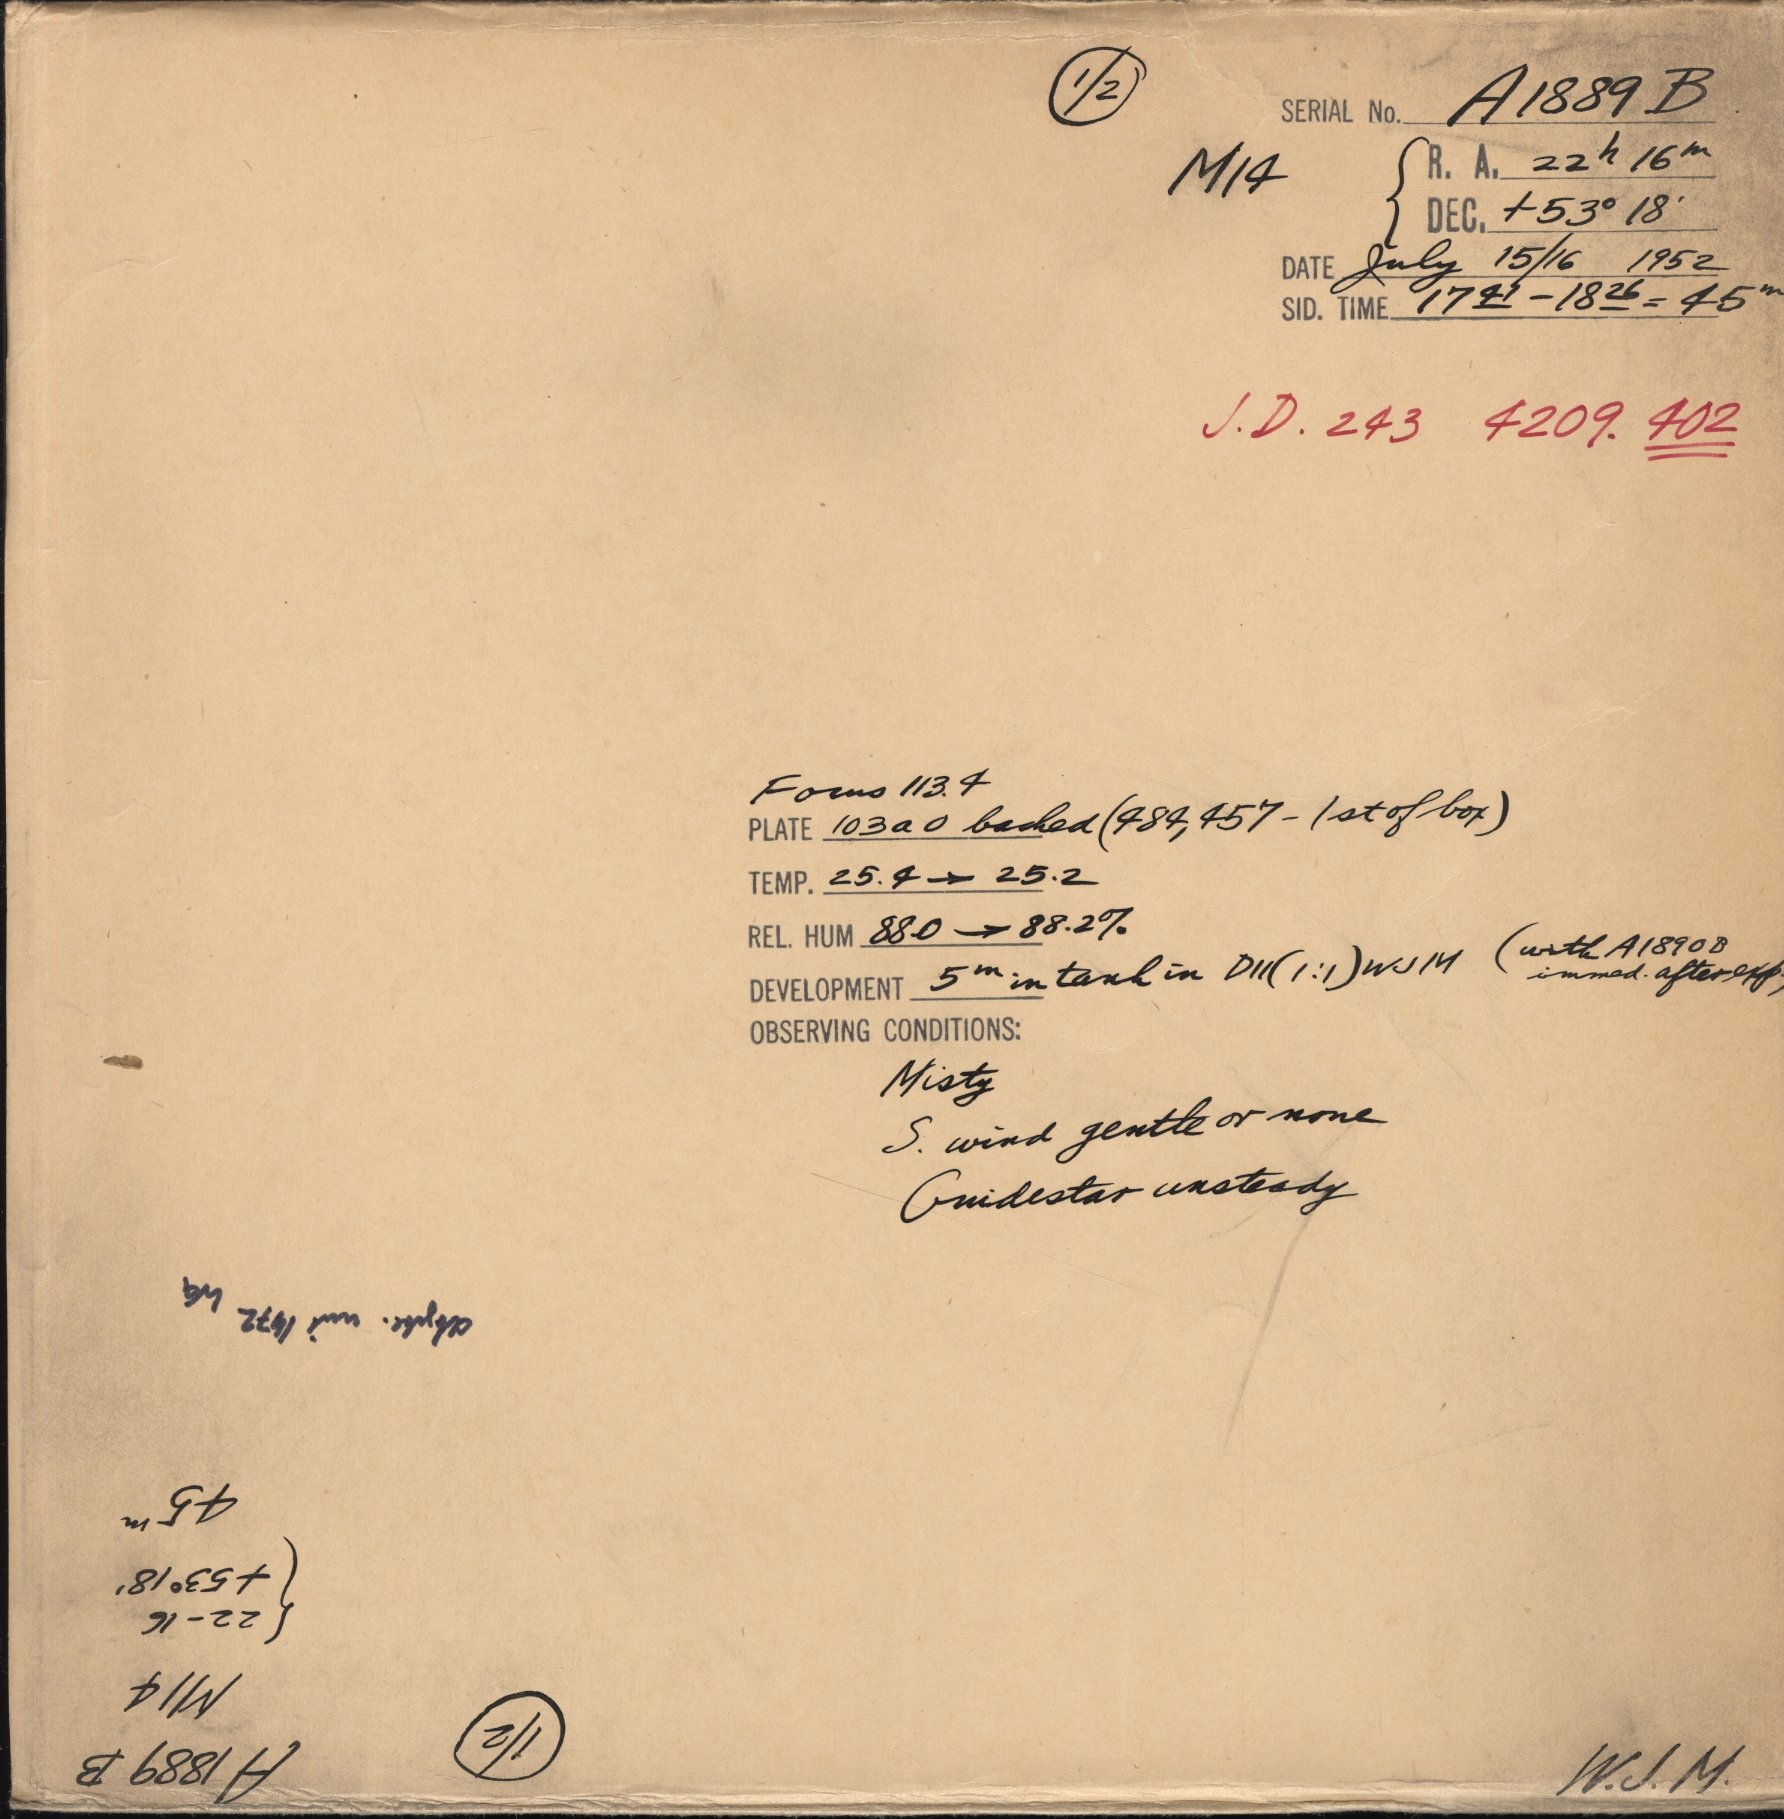 1/2
SERIAL No. A1889B
M14
R. A. 22h 16m
DEC. +53° 18'
DATE July 15/16 1952
SID. TIME 17 41 - 18 26 = 45m
J.D. 243 4209.402
Focus 113.4
PLATE 103a O backed (484,457 - 1st of box)
TEMP. 25.4 → 25.2
REL. HUM 88.0 → 88.2%
DEVELOPMENT 5m in tank in D11(1:1) WJM (with A1890B
immed. after exp.)
OBSERVING CONDITIONS:
Misty
S. wind gentle or none
Guidestar unsteady
1972
45m
+53°18'
22-16
M14
A1889B
1/2
W.J.M.